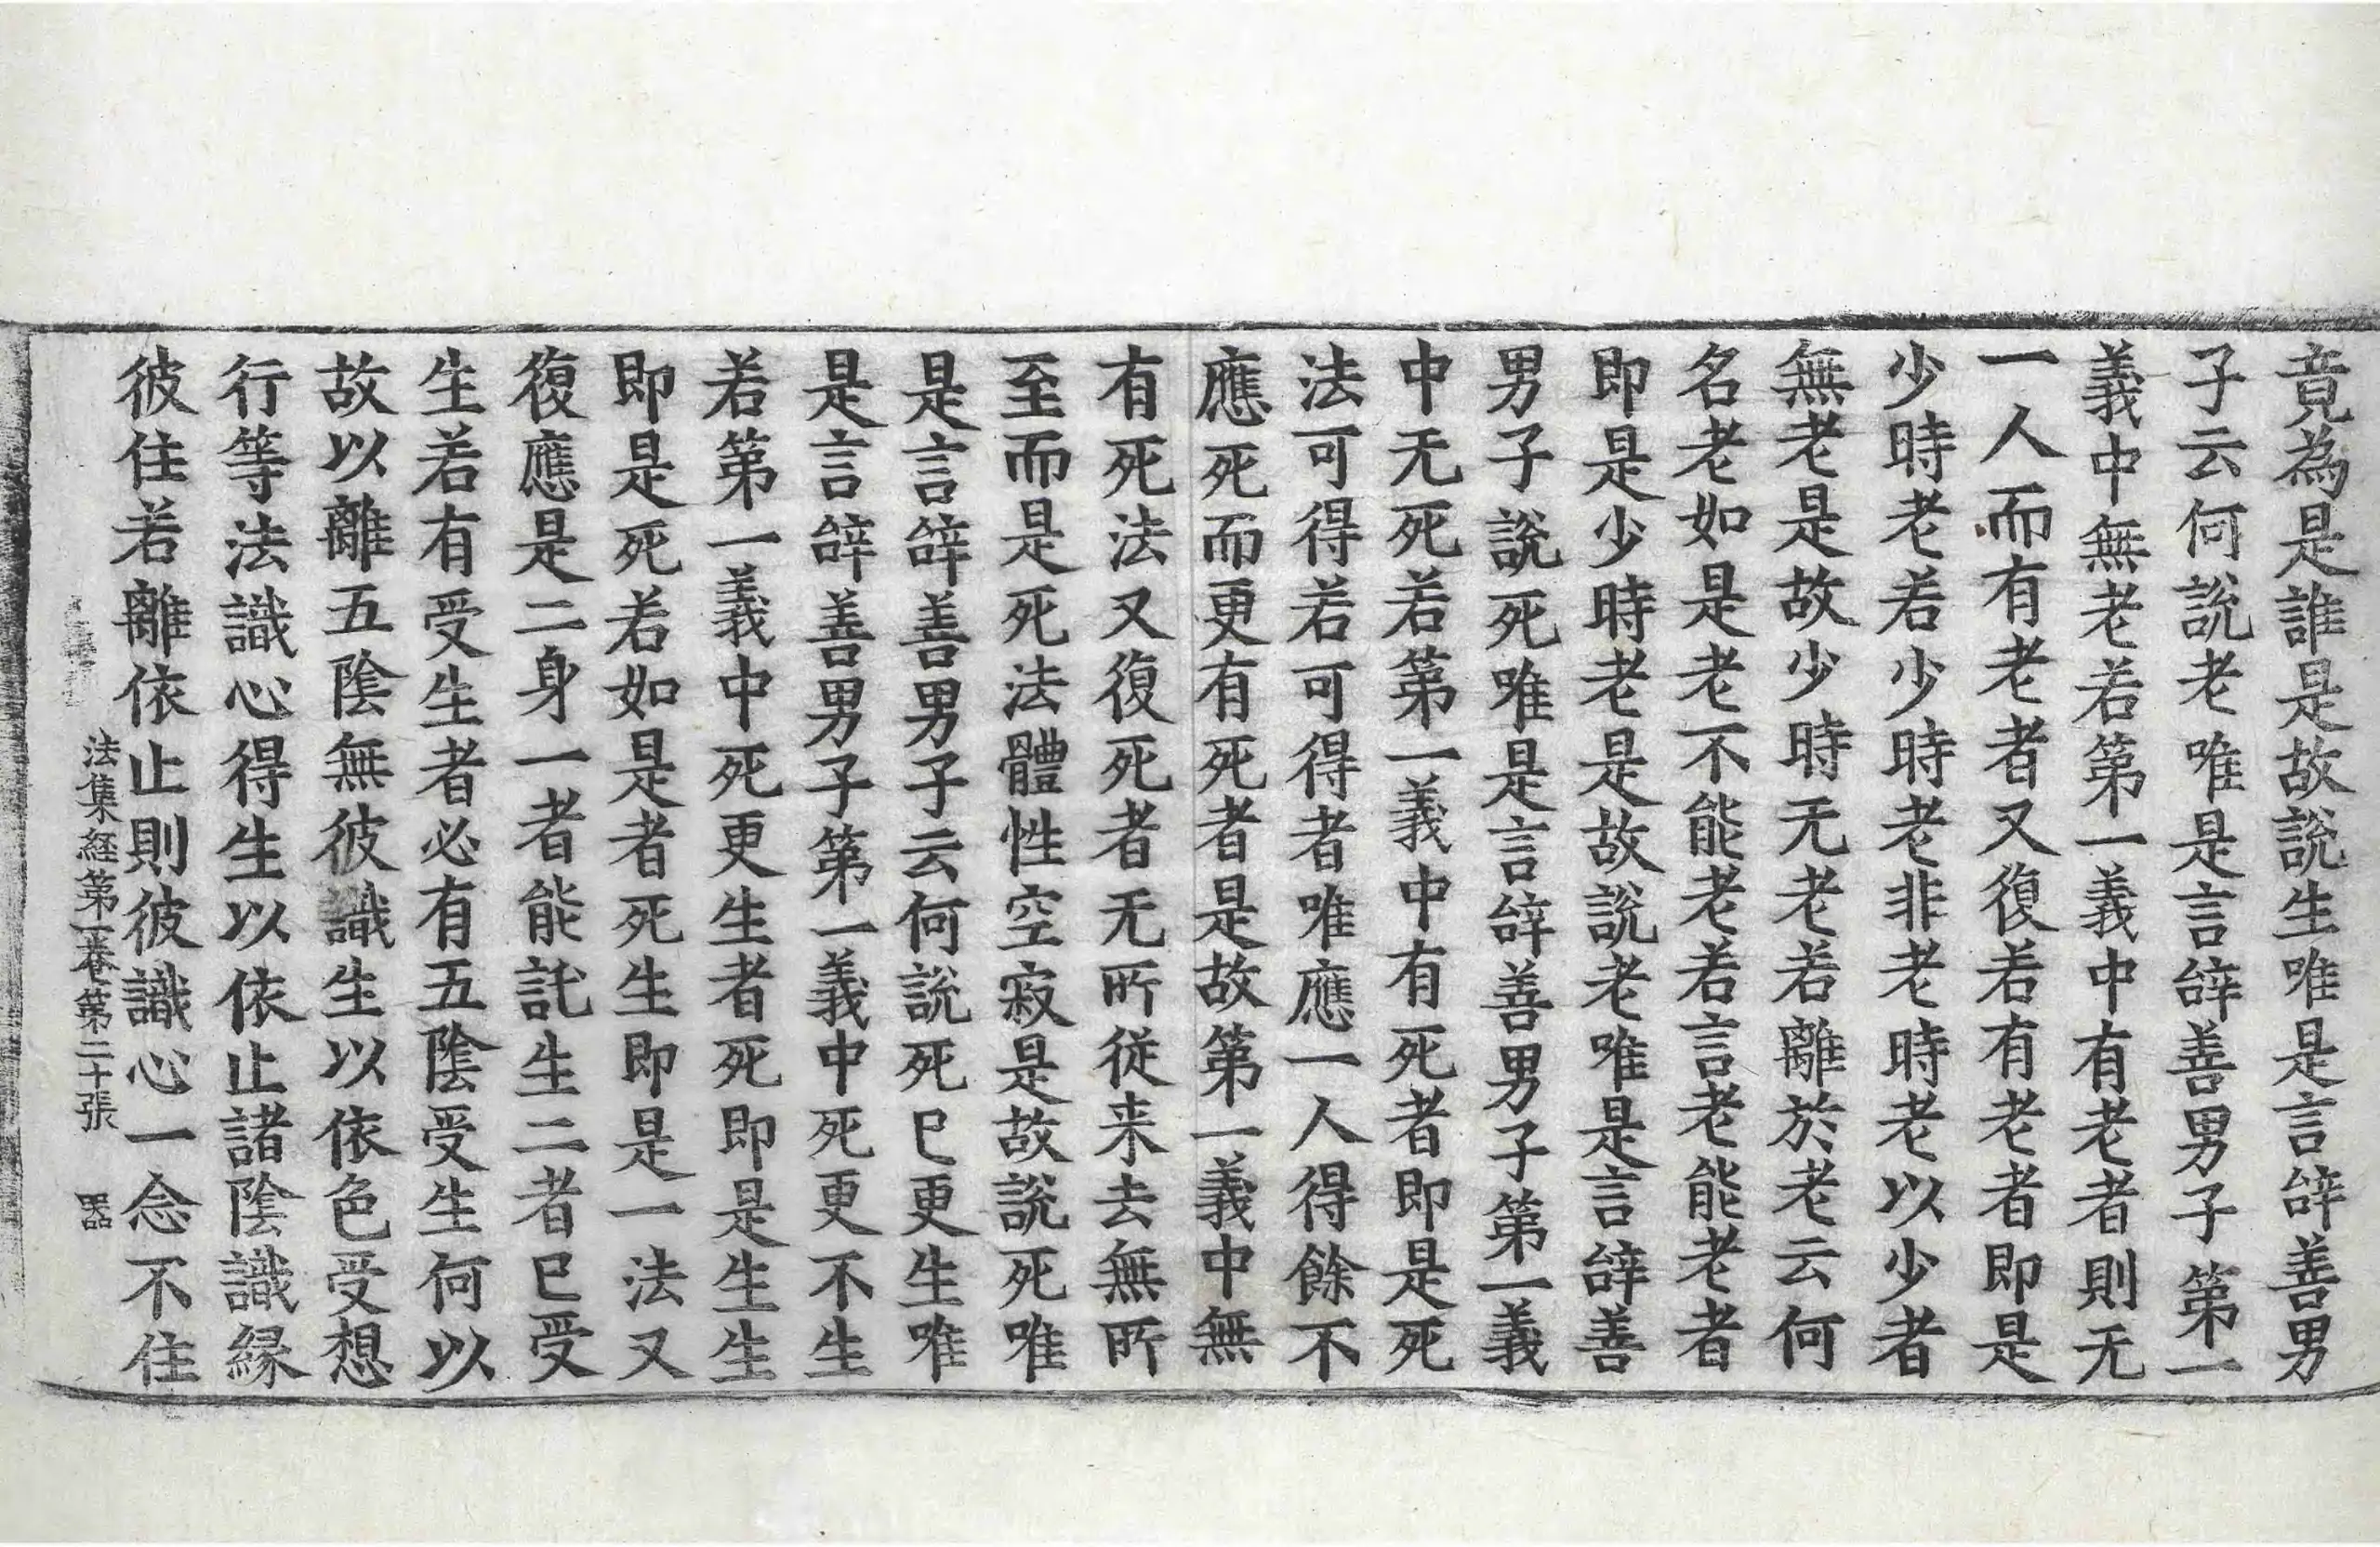 竟為是誰是故說生唯是言辝善男
子云何說老唯是言辝善男子第一
義中無老若第一義中有老者則无
一人而有老者又復若有老者即是
少時老若少時老非老時老以少者
無老是故少時无老若離於老云何
名老如是老不能老若言老能老者
即是少時老是故說老唯是言辝善
男子說死唯是言辝善男子第一義
中无死若第一義中有死者即是死
法可得若可得者唯應一人得餘不
應死而更有死者是故第一義中無
有死法又復死者无所従来去無所
至而是死法體性空寂是故說死唯
是言辝善男子云何說死已更生唯
是言辝善男子第一義中死更不生
若第一義中死更生者死即是生生
即是死若如是者死生即是一法又
復應是二身一者能託生二者已受
生若有受生者必有五陰受生何以
故以離五陰無彼識生以依色受想
行等法識心得生以依止諸陰識緣
彼住若離依止則彼識心一念不住
法集経第一卷第二十張 噐